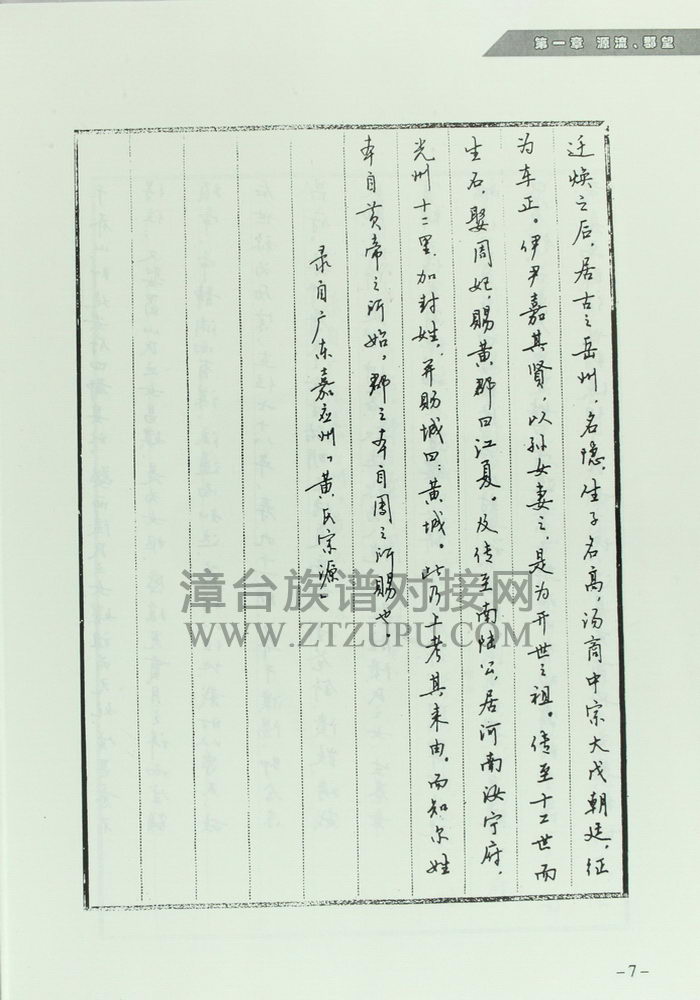 第一章 源流、郡望
迁焕之后，居古之岳州，名隐，生子名高，汤商中宗大戊朝廷，征
为车正。伊尹嘉其贤，以孙女妻之，是为开世之祖。传至十二世而
生石，娶周妃，赐黄郡曰江夏。及传至南陆公，居河南汝宁府，
光州十二里，加封姓，并赐城曰：黄城。此乃上考其来由，而知尔姓
本自黄帝之所始，郡之本自周之所赐也。
录自广东嘉应州「黄氏宗源」
漳台族谱对接网
WWW.ZTZUPU.COM
-7-